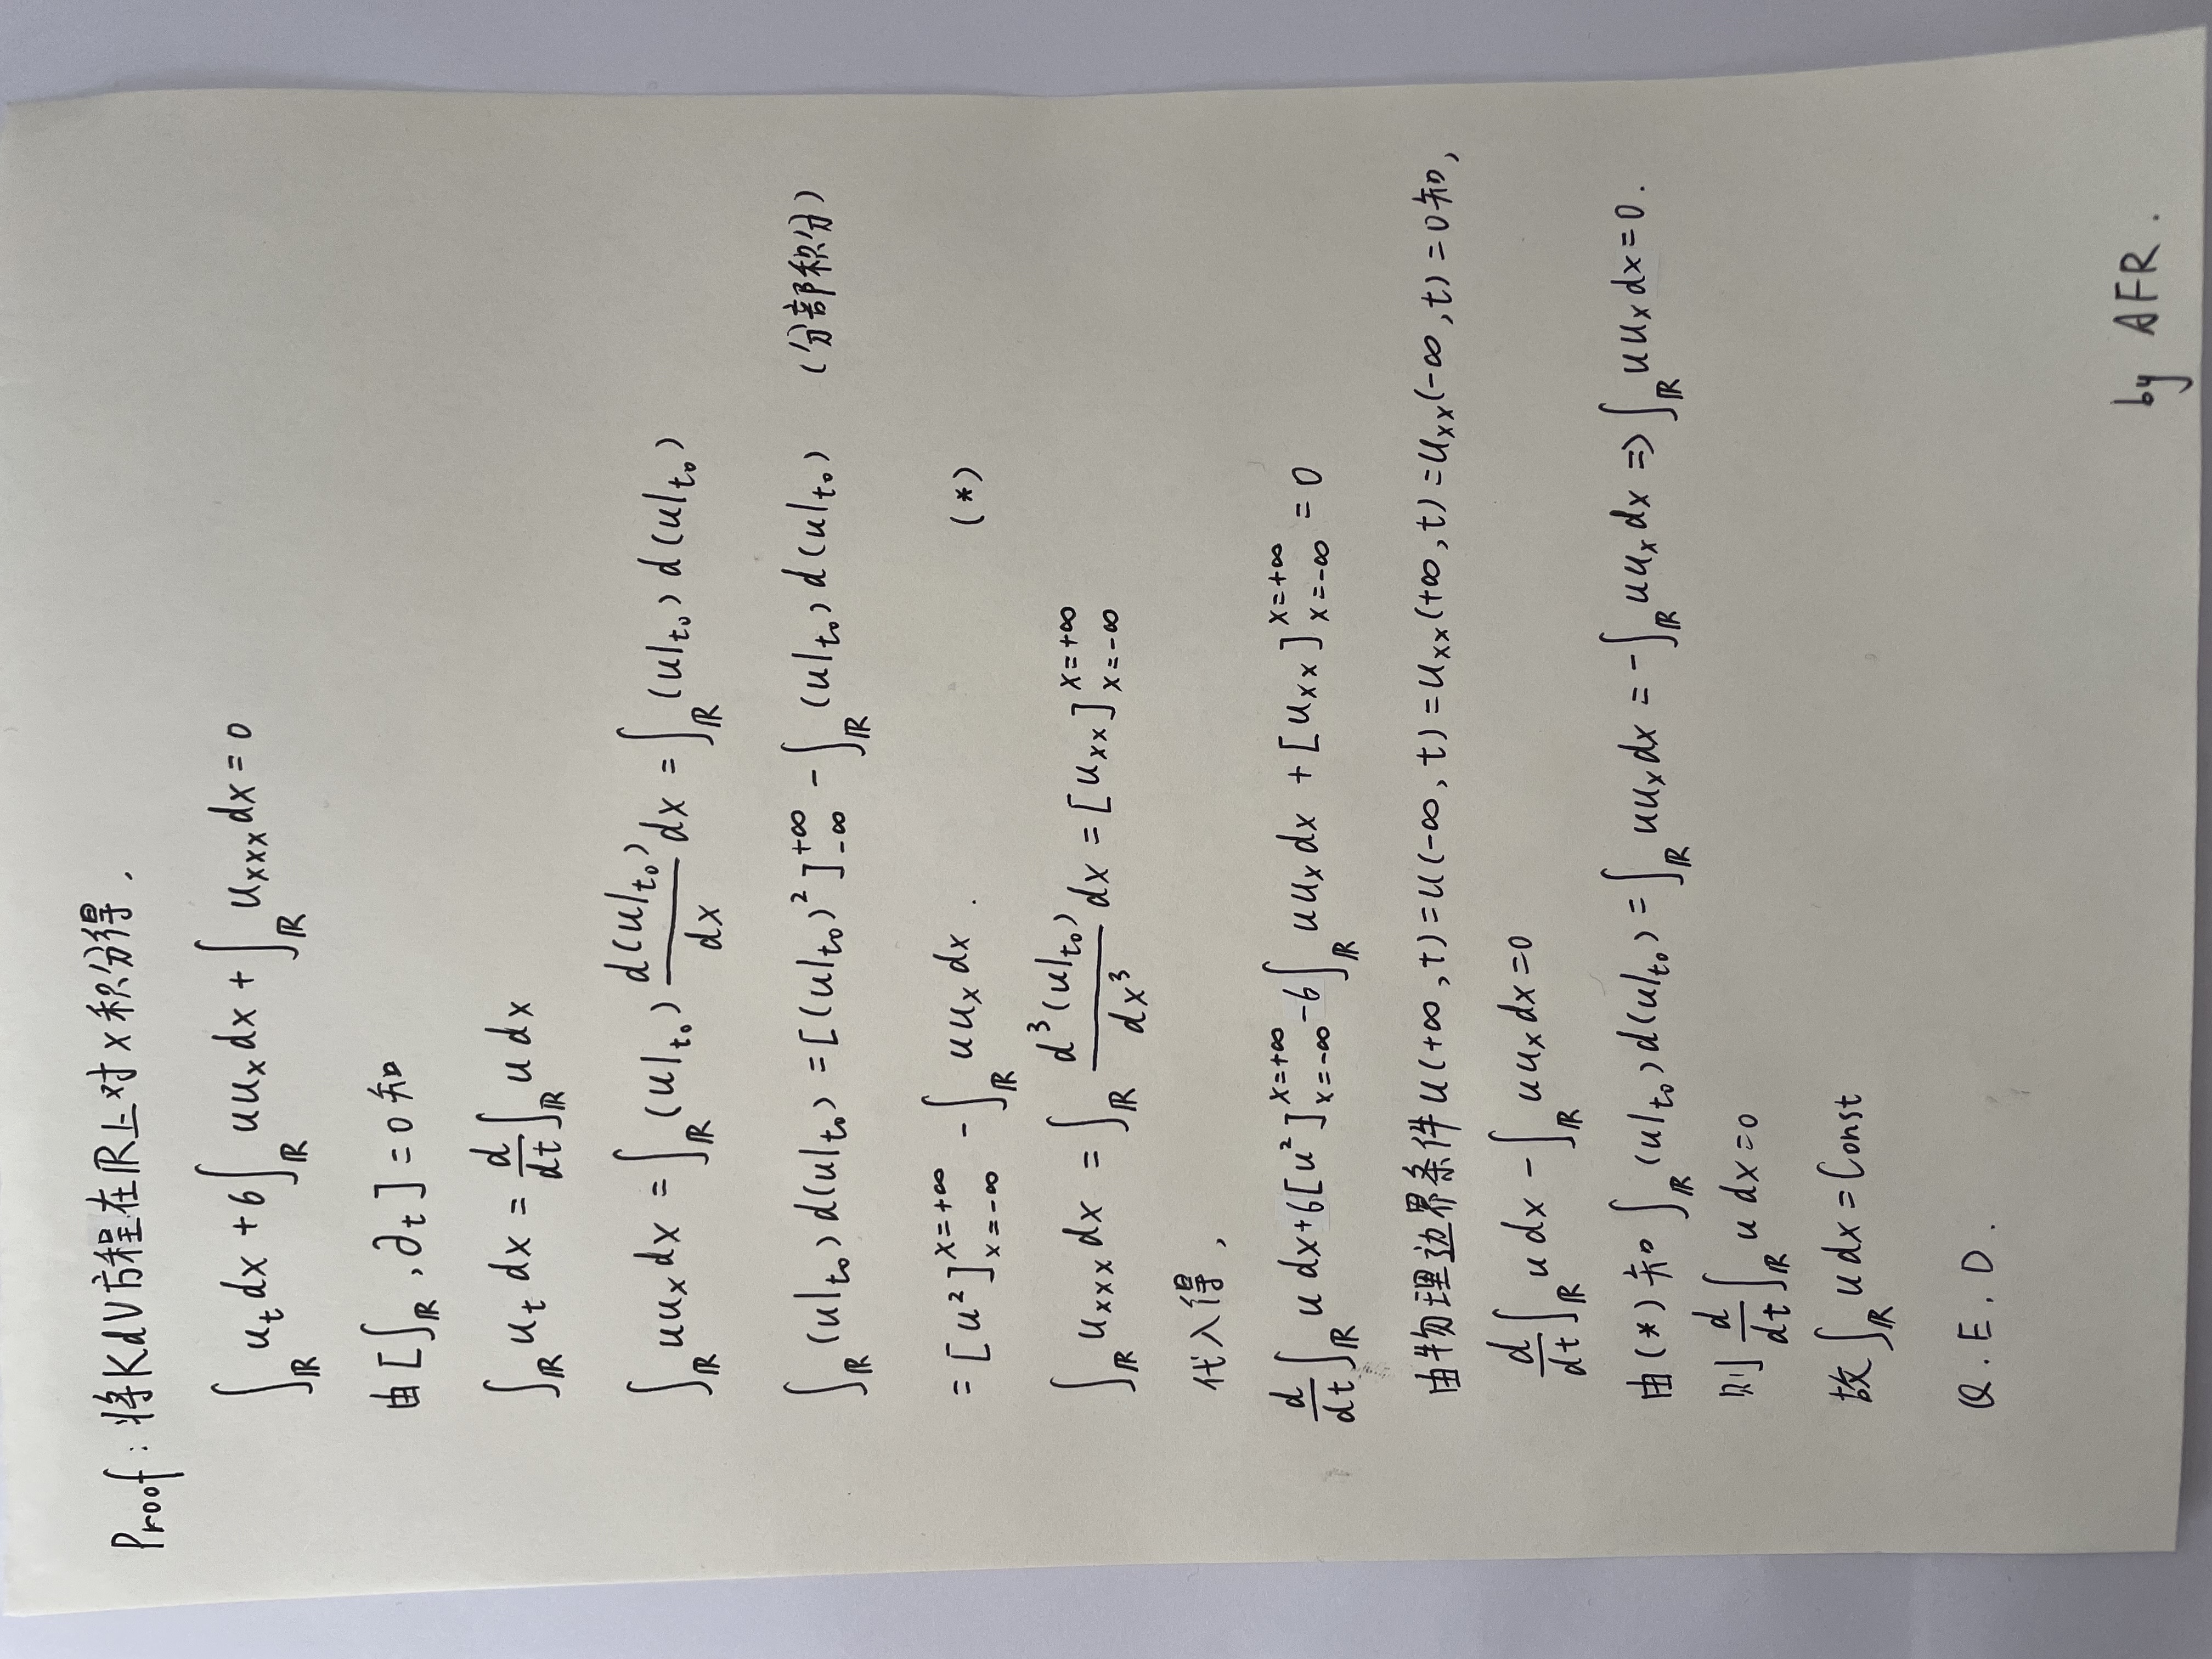 Proof: 将KdV方程在ℝ上对x积分得,
∫_ℝ u_t dx + 6∫_ℝ uu_x dx + ∫_ℝ u_xxx dx = 0
由[∫_ℝ, ∂_t] = 0知
∫_ℝ u_t dx = d/dt ∫_ℝ u dx
∫_ℝ uu_x dx = ∫_ℝ (u|_t₀) d(u|_t₀)/dx dx = ∫_ℝ (u|_t₀) d(u|_t₀)
∫_ℝ (u|_t₀) d(u|_t₀) = [(u|_t₀)²]_-∞^+∞ - ∫_ℝ (u|_t₀) d(u|_t₀) (分部积分)
= [u²]_x=-∞^x=+∞ - ∫_ℝ uu_x dx. (*)
∫_ℝ u_xxx dx = ∫_ℝ d³(u|_t₀)/dx³ dx = [u_xx]_x=-∞^x=+∞
代入得,
d/dt ∫_ℝ u dx + 6[u²]_x=-∞^x=+∞ - 6∫_ℝ uu_x dx + [u_xx]_x=-∞^x=+∞ = 0
由物理边界条件u(+∞,t) = u(-∞,t) = u_xx(+∞,t) = u_xx(-∞,t) = 0知,
d/dt ∫_ℝ u dx - ∫_ℝ uu_x dx = 0
由(*)知 ∫_ℝ (u|_t₀) d(u|_t₀) = ∫_ℝ uu_x dx = -∫_ℝ uu_x dx ⇒ ∫_ℝ uu_x dx = 0.
则 d/dt ∫_ℝ u dx = 0
故 ∫_ℝ u dx = Const
Q.E.D.
by AFR.